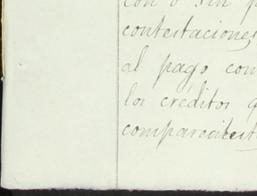 con o sin p
contestaciones
al pago con
los creditos q
comparecient